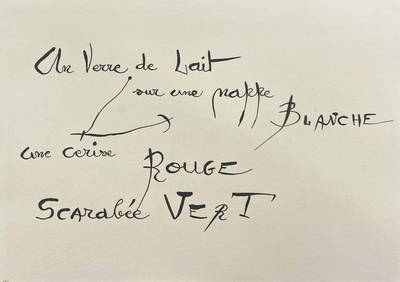 Un Verre de Lait
sur une nappe
BLANCHE
une cerise
ROUGE
Scarabée VERT